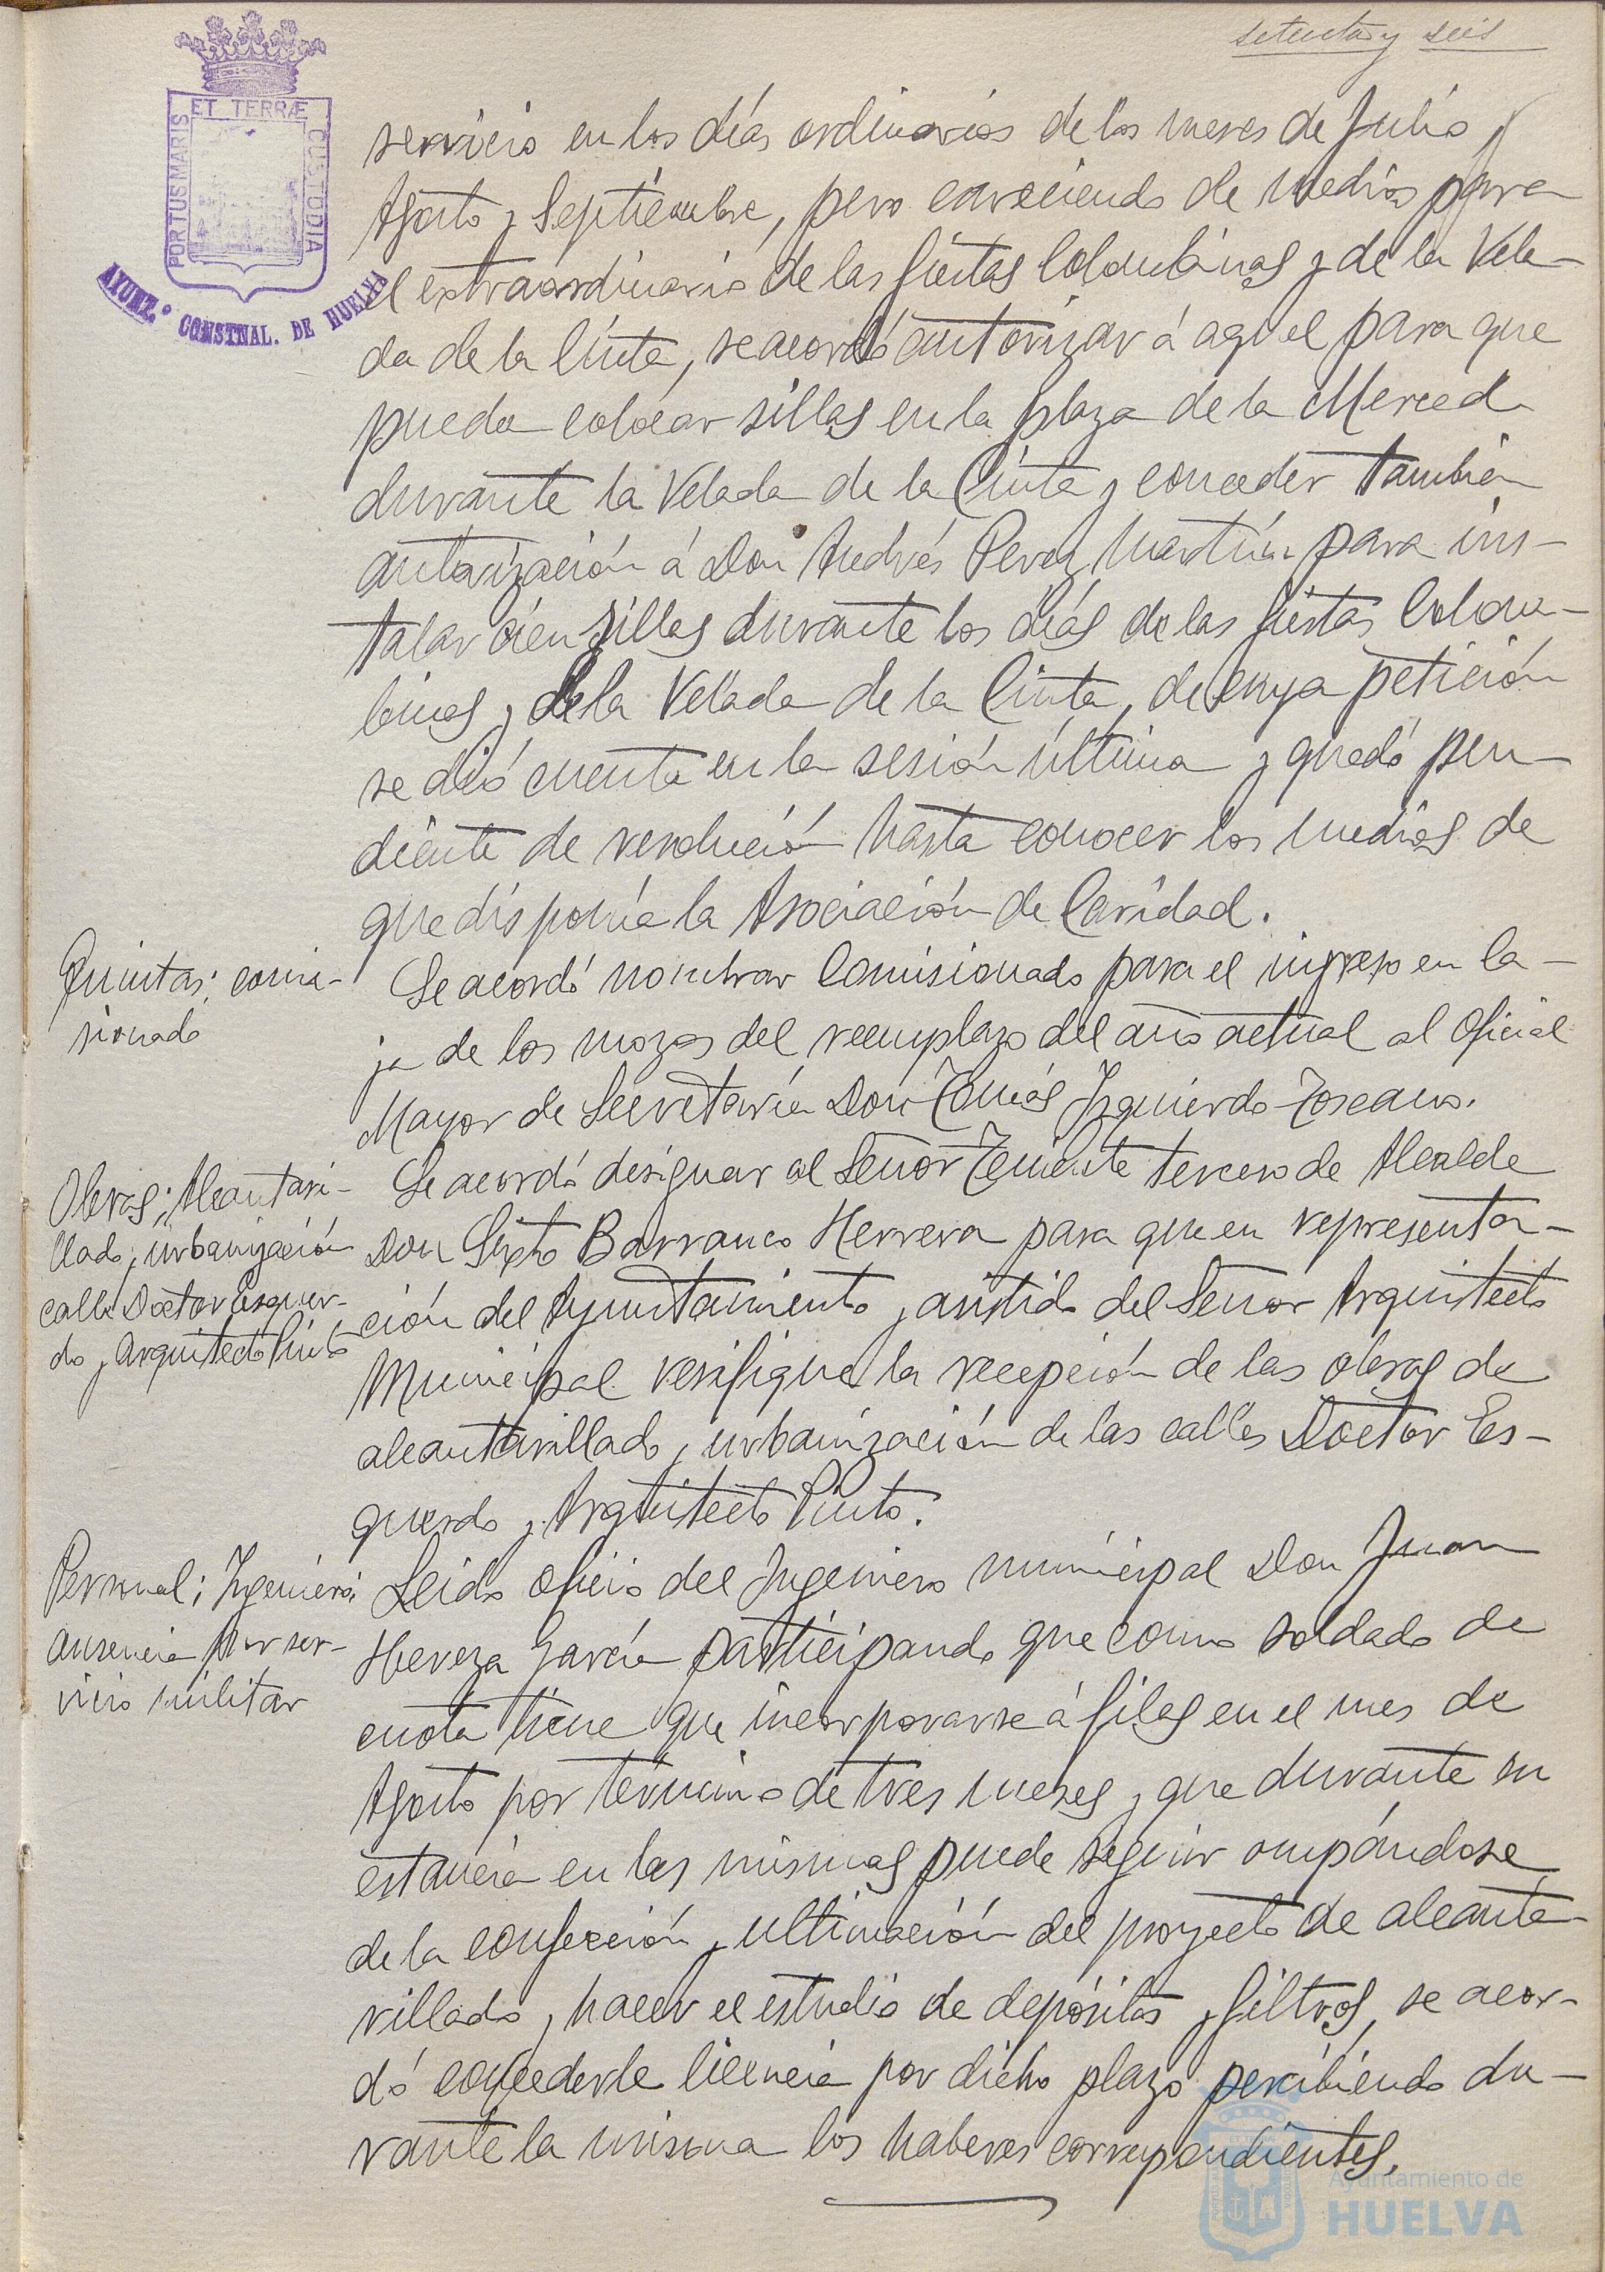 setenta y seis
ET TERRÆ
PORTUS MARIS
CUSTODIA
AYUNT.º CONSTNAL. DE HUELVA
servicio en los días ordinarios de los meses de Julio
Agosto y Septiembre, pero careciendo de medios para
el extraordinario de las fiestas Colombinas y de la Vela-
da de la Cinta, se acordó autorizar á aquel para que
pueda colocar sillas en la plaza de la Merced
durante la Velada de la Cinta y conceder también
autorización á Don Andrés Perez Martín para ins-
talar cien sillas durante los días de las fiestas Colom-
binas y de la Velada de la Cinta, de cuya petición
se dió cuenta en la sesión última y quedó pen-
diente de resolución hasta conocer los medios de
que disponía la Asociación de Caridad.
Quintas; comi-
sionado
Se acordó nombrar Comisionado para el ingreso en Ca-
ja de los mozos del reemplazo del año actual al Oficial
Mayor de Secretaría Don Tomás Izquierdo Toscano.
Obras; Alcantari-
llado y urbanización
calle Doctor Esquer-
do y Arquitecto Pinto
Se acordó designar al Señor Teniente tercero de Alcalde
Don Sixto Barranco Herrera para que en representa-
ción del Ayuntamiento y asistido del Señor Arquitecto
Municipal verifique la recepción de las obras de
alcantarillado y urbanización de las calles Doctor Es-
querdo y Arquitecto Pinto.
Personal; Ingeniero;
ausencia por ser-
vicio militar
Leido oficio del Ingeniero municipal Don Juan
Hereza García participando que como soldado de
cuota tiene que incorporarse á filas en el mes de
Agosto por término de tres meses y que durante su
estancia en las mismas puede seguir ocupándose
de la confección y ultimación del proyecto de alcanta-
rillado y hacer el estudio de depósitos y filtros, se acor-
dó concederle licencia por dicho plazo percibiendo du-
rante la misma los haberes correspondientes.
Ayuntamiento de
HUELVA